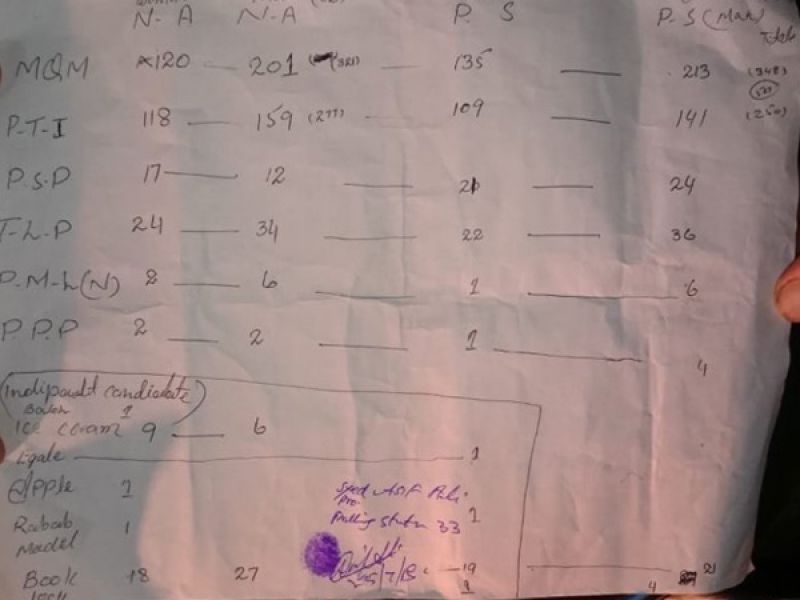 N-A N-A P. S P. S (Man)
MQM 120 201 (321) 135 213 (348)
P-T-I 118 159 (277) 109 141 (250)
P.S.P 17 12 21 24
T-L-P 24 34 22 36
P-M-L(N) 2 6 1 6
P.P.P 2 2 1 4
Indipandt candidate
1
Ice cream 9 6
Egale 1
Apple 1
Rabab 1
Model
Polling Station 33 1
Book 18 27 19 21
25/7/18
1 4